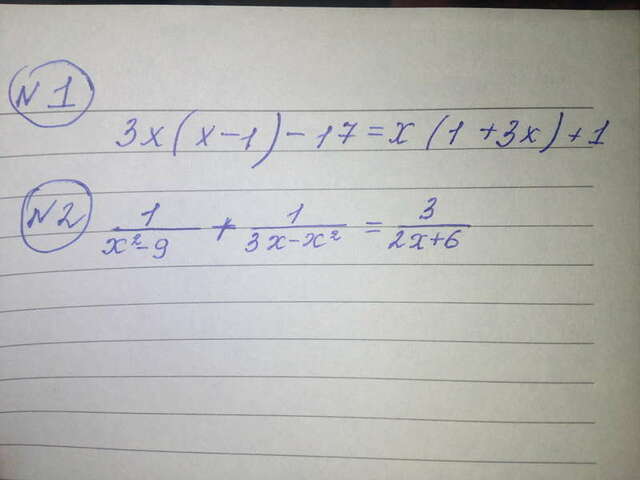 N1
3x(x-1)-17=x(1+3x)+1
N2 1/(x²-9) + 1/(3x-x²) = 3/(2x+6)